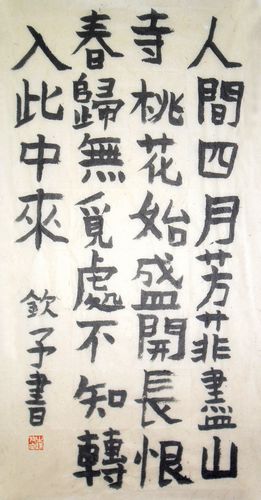 人間四月芳菲盡山
寺桃花始盛開長恨
春歸無覓處不知轉
入此中來
欽子書